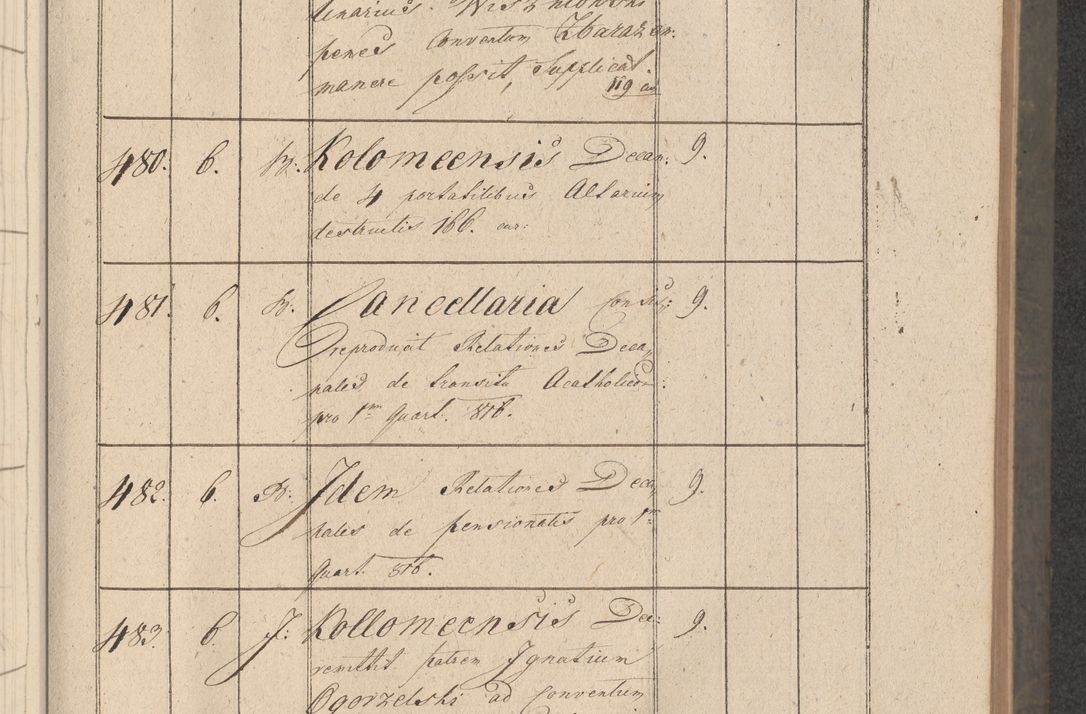 penes Conventum Zbarazen:
manere possit, Supplicat.
119 cur
480. 6. R. Kolomeensis Decan: 9.
de 4 portatilibus Altarium
destructis 166. cur:
481. 6. R. Cancellaria Consist: 9.
reproducit Relationes Deca
nales de transitu Acatholicor:
pro 1m Quart. 816.
482. 6. R. Idem Relationes Deca 9.
nales de pensionatis pro 1m
Quart. 816.
483. 6. J: Kollomeensis Dec: 9.
remittit patrem Ignatium
Ogorzelski ad Conventum